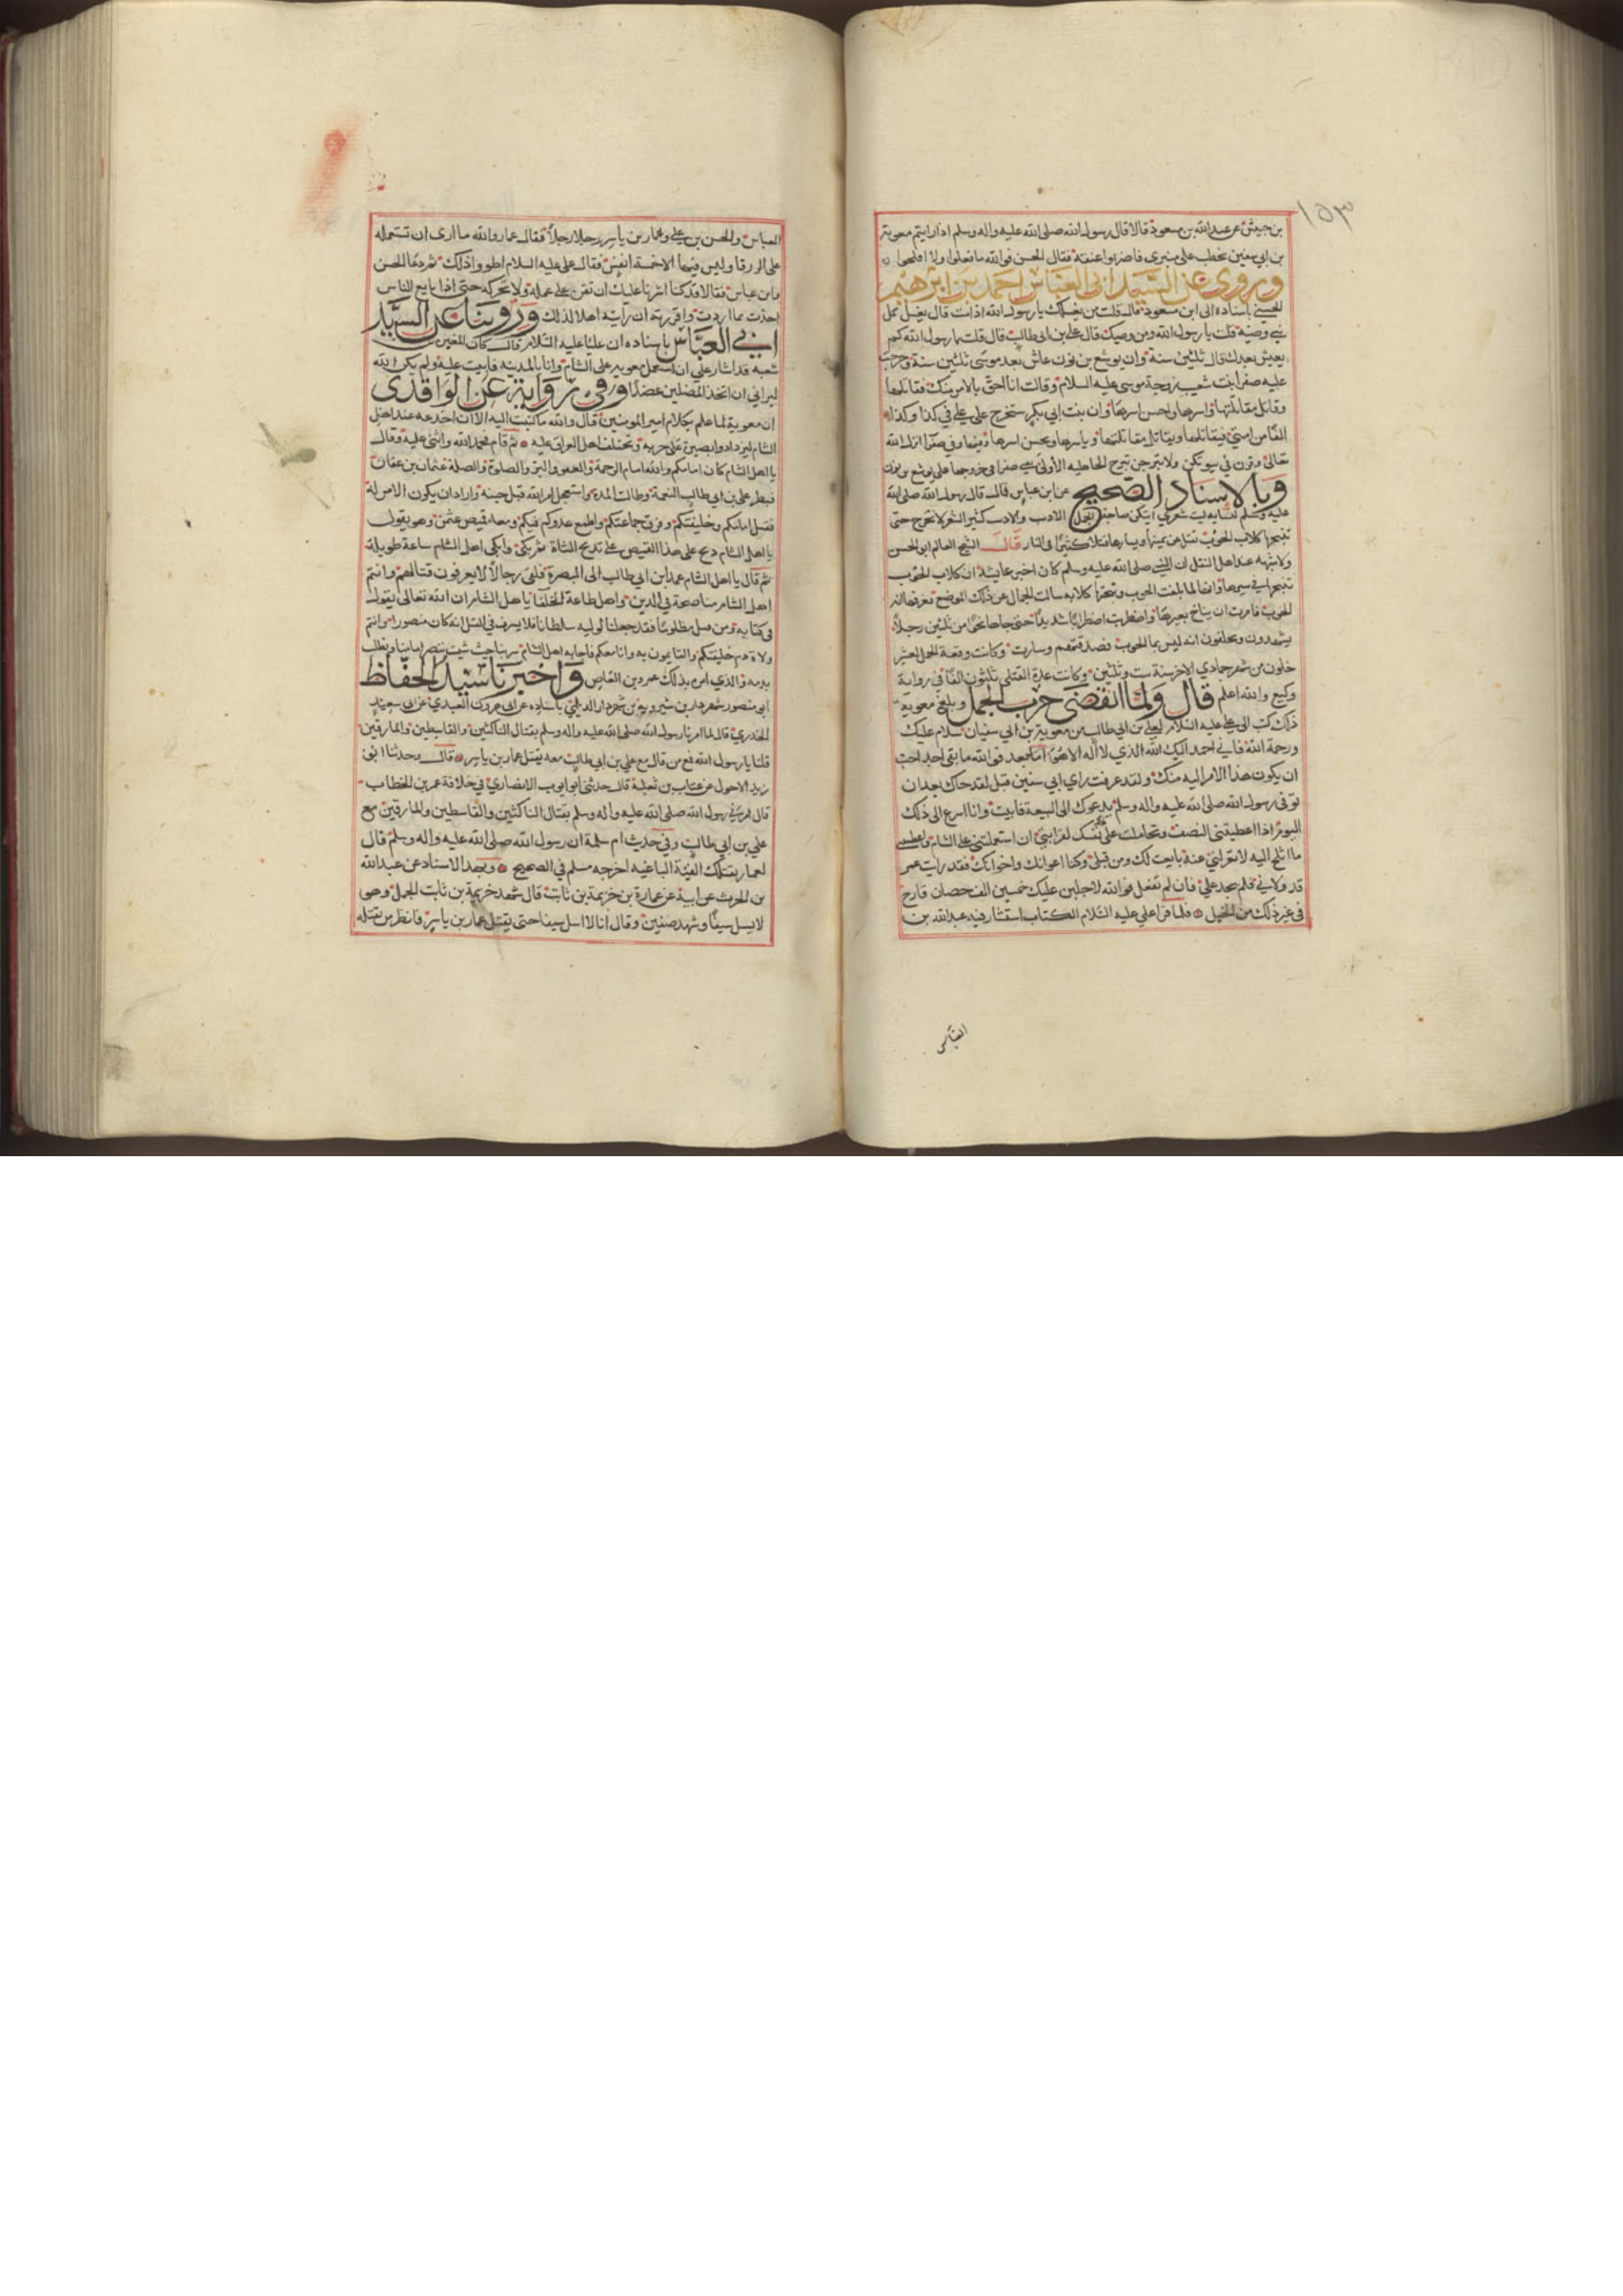 ١٥٣
بن حبيش عن عبدالله بن مسعود قالا قال رسول الله صلى الله عليه واله وسلم اذا رايتم معوية
بن ابي سفين يخطب على منبري فاضربوا عنقه فقال الحسن فوالله ما فعلوا ولا افلحوا
وروى عن السيد ابي العباس احمد بن ابرهيم
الحسني باسناده الى ابن مسعود قال قلت من يغسلك يا رسول الله اذا مت قال يغسل كل
نبي وصيه قلت يا رسول الله ومن وصيك قال علي بن ابي طالب قال قلت يا رسول الله كم
يعيش بعدك قال ثلثين سنة وان يوشع بن نون عاش بعد موسى ثلثين سنة وخرجت
عليه صفرا بنت شعيب زوجة موسى عليه السلام وقالت انا احق بالامر منك فقاتلها
وقاتل مقاتلتها واسرها واحسن اسرها وان بنت ابي بكر ستخرج على علي في كذا وكذا
الفا من امتي فيقاتلها ويقاتل مقاتلتها وياسرها ويحسن اسرها وفيها وفي صفرا انزل الله
تعالى وقرن في بيوتكن ولا تبرجن تبرج الجاهليه الأولى يعني صفرا في خروجها على يوشع بن نون
وبالاسناد الصحيح عن ابن عباس قال قال رسول الله صلى الله
عليه وسلم لنسايه ليت شعري ايتكن صاحبة الجمل الادب والادب كثير الشعر لا تخرج حتى
تنبحها كلاب الحوب يقتل عن يمينها ويسارها قتلا كثيرا في النار قال الشيخ العالم ابو الحسن
ولا شبهه عند اهل النقل ان النبي صلى الله عليه وسلم كان اخبر عايشة ان كلاب الحوب
تنبحها في سيرها وانها لما بلغت الحوب ونبحتها كلابه سالت الجمال عن ذلك الموضع فعرفها انه
الحوب فامرت ان يناخ بعيرها واضطربت اضطرابا شديدا حتى جاها نحوا من ثلثين رجلا
يشهدون ويحلفون انه ليس بما الحوب فصدقتهم وسارت وكانت وقعة الجمل لعشر
خلون من شهر جمادي الاخر سنة ست وثلثين وكانت عدة القتلى ثلثون الفا في رواية
وكيع والله اعلم قال ولما انقضى حرب الجمل وبلغ معوية
ذلك كتب الى علي عليه السلام لعلي بن ابي طالب من معوية بن ابي سفيان سلام عليك
ورحمة الله فاني احمد اليك الله الذي لا اله الا هو اما بعد فوالله ما بقى احد احب
ان يكون هذا الامر اليه منك ولقد عرفت راي ابي سفين قبل لقد جاك بعد ان
توفى رسول الله صلى الله عليه واله وسلم يدعوك الى البيعة فابيت وانا اسرع الى ذلك
اليوم اذا اعطيتني النصف وتحاملت على نفسك لقرابتي ان استعملتني على الشام واعطيتني
ما اثلج اليه لا تعزلني عنه بايعت لك ومن قبلي وكنا اعوانك واخوانك فقد رايت عمر
قد ولاني فلم يجد علي فان لم تفعل فوالله لاجلبن عليك خمسين الف حصان قارح
في غير ذلك من الخيل فلما قرا علي عليه السلام الكتاب استشار فيه عبدالله بن
العباس
العباس والحسن بن علي وعمار بن ياسر رجلا رجلا فقال عمار والله ما ارى ان تستعمله
على الزرقا وليس فيها الا خمسة انفس فقال علي عليه السلام اطو واذلك ثم دعا الحسن
وابن عباس فقالا قد كنا اشرنا عليك ان تقره على عمله ولا تحركه حتى اذا بايع الناس
اخذت بما اردت واقررته ان رايته اهلا لذلك وروينا عن السيد
ابي العباس باسناده ان عليا عليه السلام قال كان المغيرة بن
شعبه قد اشار علي ان استعمل معويه على الشام وانا بالمدينه فابيت عليه ولم يكن الله
ليراني ان اتخذ المضلين عضدا وفي رواية عن الواقدى
ان معوية لما علم بكلام امير المومنين قال والله ما كتبت اليه الا ان اخدعه عند اهل
الشام ليزدادوا بصيرة على حربه وتختلف اهل العراق عليه ثم قام فحمد الله واثنى عليه وقال
يا اهل الشام كان امامكم والله امام الرحمة والعفو والبر والصلوة والصلة عثمان بن عفان
فبطر علي بن ابي طالب النعمة وطالت المدة واستعجل امر الله قبل حينه واراد ان يكون الامر له
فقتل امامكم وخليفتكم وفرق جماعتكم واطمع عدوكم فيكم ومعه قميص عثمن وهو يقول
يا اهل الشام ذبح على هذا القميص على تذبح الشاة ثم بكى وابكى اهل الشام ساعة طويلة
ثم قال يا اهل الشام عمد ابن ابي طالب الى البصرة فلقى رجالا لا يعرفون قتالهم وانتم
اهل الشام مناصحة في الدين واهل طاعة الخلفا يا اهل الشام ان الله تعالى يقول
في كتابه ومن قتل مظلوما فقد جعلنا لوليه سلطانا فلا يسرف في القتل انه كان منصورا وانتم
ولاة دم خليفتكم والقايمون به وانا معكم فاجابه اهل الشام سر بنا حيث شيت ننصر امامنا ونطلب
بدمه والذي امره بذلك عمرو بن العاص واخبرنا سيد الحفاظ
ابو منصور شهردار بن شيرويه بن شهردار الديلمي باسناده عن ابي هرون العبدي عن ابي سعيد
الخدري قال لما امرنا رسول الله صلى الله عليه واله وسلم بقتال الناكثين والقاسطين والمارقين
قلنا يا رسول الله فمع من قال مع علي بن ابي طالب معه يقتل عمار بن ياسر قال وحدثنا ابو
زيد الاحول عن عتاب بن ثعلبة قال حدثني ابو ايوب الانصاري في خلافة عمر بن الخطاب
قال امرني رسول الله صلى الله عليه واله وسلم بقتال الناكثين والقاسطين والمارقين مع
علي بن ابي طالب وفي حديث ام سلمة ان رسول الله صلى الله عليه واله وسلم قال
لعمار يقتلك الفيئة الباغيه اخرجه مسلم في الصحيح وبهذا الاسناد عن عبدالله
بن الحرث عن ابيه عن عمارة بن خزيمة بن ثابت قال شهد خزيمة بن ثابت الجمل وهو
لا يسل سيفا وشهد صفين وقال انا لا اسل سيفا حتى يقتل عمار بن ياسر فانظر من يقتله